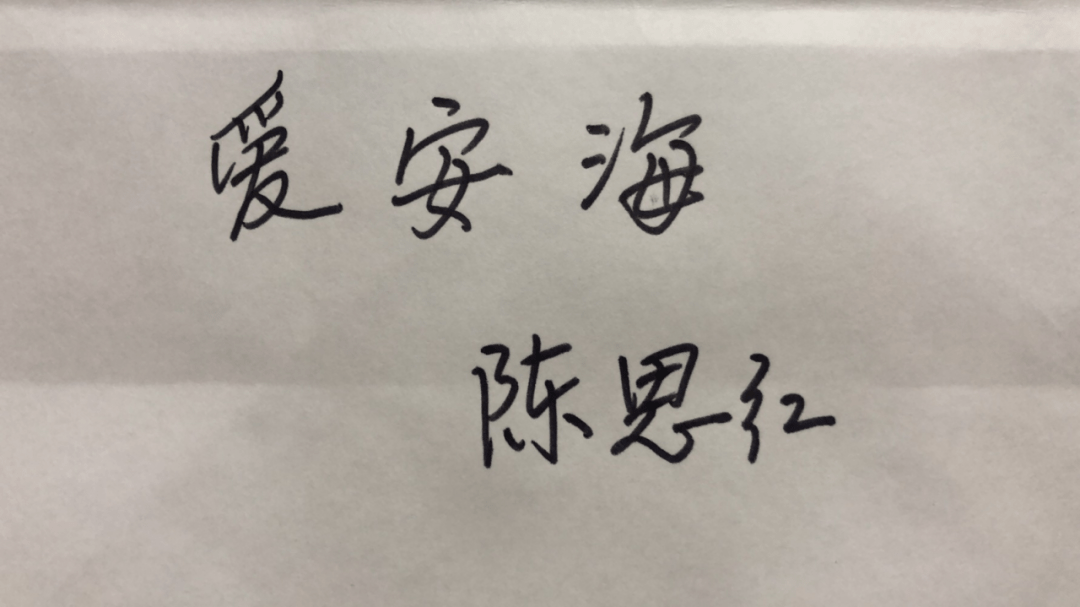 爱安海
陈恩红